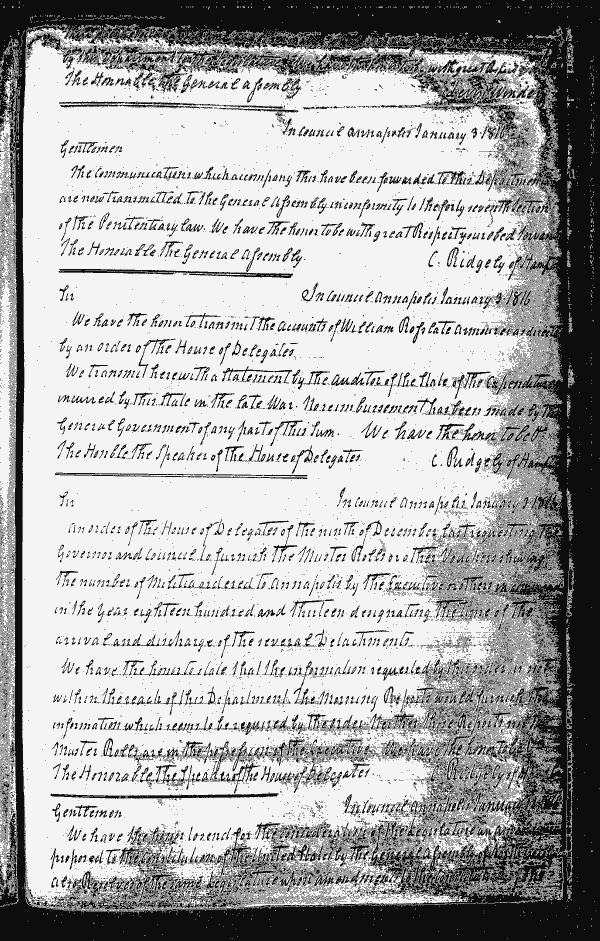 by the Department
The Honorable the General Assembly
In Council Annapolis January 3 1816
Gentlemen
The Communications which accompany this have been forwarded to this Department
are now transmitted to the General Assembly in conformity to the forty seventh section
of the Penitentiary law. We have the honor to be with great Respect your obed Servants
The Honorable the General Assembly. C. Ridgely of Hamp
Sir In Council Annapolis January 3 1816
We have the honor to transmit the accounts of William Ross late armourer as directed
by an order of the House of Delegates
We transmit herewith a statement by the auditor of the State of the Expenditures
incurred by this State in the late War. No reimbursement has been made by the
General Government of any part of this sum. We have the honor to be &c
The Honble the Speaker of the House of Delegates C. Ridgely of Hamp
Sir In Council Annapolis January 3 1816
An order of the House of Delegates of the ninth of December last requesting the
Governor and Council to furnish the Muster Rolls or other Vouchers shewing
the number of Militia ordered to Annapolis by the Executive or others
in the Year eighteen hundred and thirteen designating the time of the
arrival and discharge of the several Detachments
We have the honor to state that the information requested by this order is not
within the reach of this Department. The Morning Reports would furnish the
information which seems to be required by the order Neither these Reports nor the
Muster Rolls are in the possession of the Executive. We have the honor to be &c
The Honorable the Speaker of the House of Delegates C. Ridgely of
Gentlemen In Council Annapolis January
We have the honor to send for the consideration of the Legislature an
proposed to the constitution of the United States by the General Assembly of
also Resolves of the same Legislature upon amendments